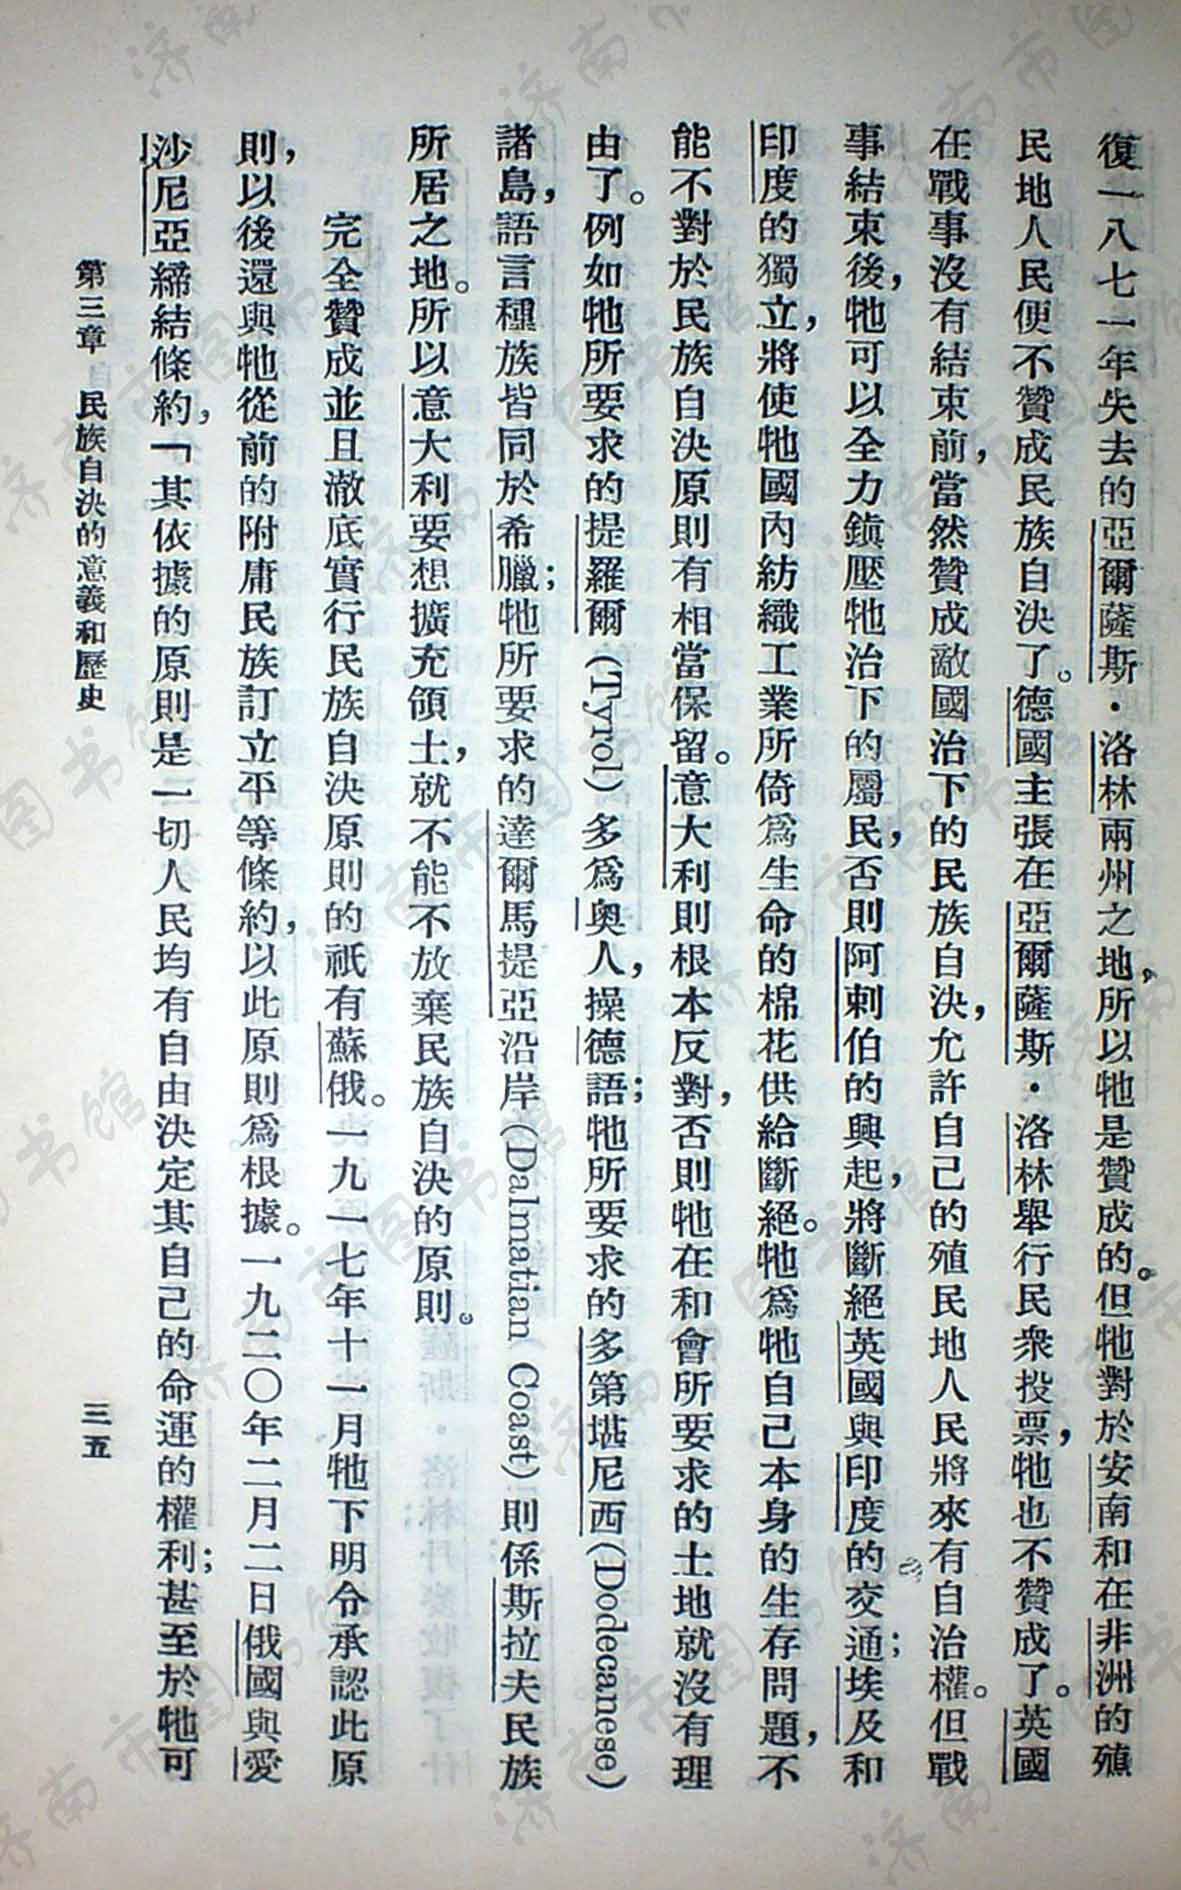 復一八七一年失去的亞爾薩斯·洛林兩州之地，所以牠是贊成的。但牠對於安南和在非洲的殖
民地人民便不贊成民族自決了。德國主張在亞爾薩斯·洛林舉行民衆投票，牠也不贊成了。英國
在戰事沒有結束前，當然贊成敵國治下的民族自決，允許自己的殖民地人民將來有自治權。但戰
事結束後，牠可以全力鎮壓牠治下的屬民，否則阿剌伯的興起，將斷絕英國與印度的交通；埃及和
印度的獨立，將使牠國內紡織工業所倚爲生命的棉花供給斷絕。牠爲牠自己本身的生存問題，不
能不對於民族自決原則有相當保留。意大利則根本反對，否則牠在和會所要求的土地就沒有理
由了。例如牠所要求的提羅爾(Tyrol)多爲奧人，操德語；牠所要求的多第堪尼西(Dodecanese)
諸島，語言種族皆同於希臘；牠所要求的達爾馬提亞沿岸(Dalmatian Coast)則係斯拉夫民族
所居之地。所以意大利要想擴充領土，就不能不放棄民族自決的原則。
完全贊成並且澈底實行民族自決原則的祇有蘇俄。一九一七年十一月牠下明令承認此原
則，以後還與牠從前的附庸民族訂立平等條約，以此原則爲根據。一九二〇年二月二日俄國與愛
沙尼亞締結條約，「其依據的原則是一切人民均有自由決定其自己的命運的權利；甚至於牠可
第三章 民族自決的意義和歷史
三五